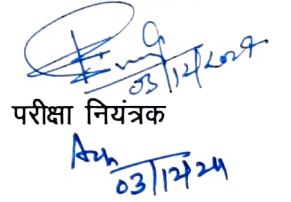 03/12/2024
परीक्षा नियंत्रक
03/12/24